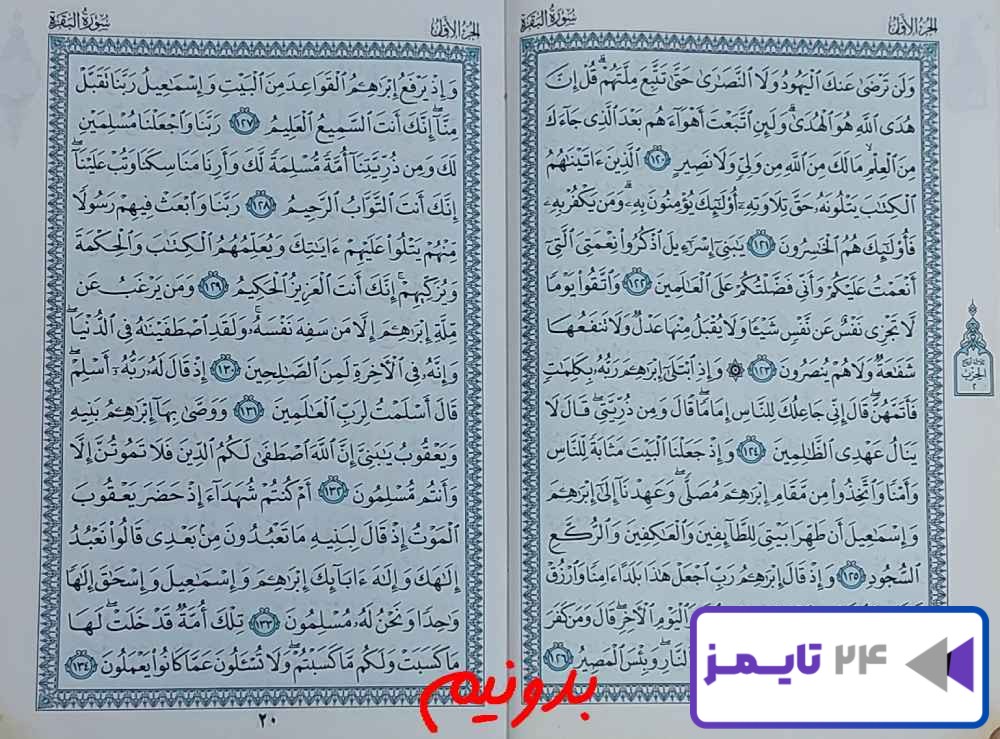 الجزء الأول
سورة البقرة
وَلَن تَرْضَىٰ عَنكَ الْيَهُودُ وَلَا النَّصَارَىٰ حَتَّىٰ تَتَّبِعَ مِلَّتَهُمْ ۗ قُلْ إِنَّ
هُدَى اللَّهِ هُوَ الْهُدَىٰ ۗ وَلَئِنِ اتَّبَعْتَ أَهْوَاءَهُم بَعْدَ الَّذِي جَاءَكَ
مِنَ الْعِلْمِ ۙ مَا لَكَ مِنَ اللَّهِ مِن وَلِيٍّ وَلَا نَصِيرٍ ١٢٠ الَّذِينَ ءَاتَيْنَاهُمُ
الْكِتَابَ يَتْلُونَهُ حَقَّ تِلَاوَتِهِ أُولَٰئِكَ يُؤْمِنُونَ بِهِ ۗ وَمَن يَكْفُرْ بِهِ
فَأُولَٰئِكَ هُمُ الْخَاسِرُونَ ١٢١ يَٰبَنِي إِسْرَٰءِيلَ اذْكُرُوا نِعْمَتِيَ الَّتِي
أَنْعَمْتُ عَلَيْكُمْ وَأَنِّي فَضَّلْتُكُمْ عَلَى الْعَالَمِينَ ١٢٢ وَاتَّقُوا يَوْمًا
لَّا تَجْزِي نَفْسٌ عَن نَّفْسٍ شَيْئًا وَلَا يُقْبَلُ مِنْهَا عَدْلٌ وَلَا تَنفَعُهَا
شَفَاعَةٌ وَلَا هُمْ يُنصَرُونَ ١٢٣ ۞ وَإِذِ ابْتَلَىٰ إِبْرَاهِيمَ رَبُّهُ بِكَلِمَاتٍ
فَأَتَمَّهُنَّ ۖ قَالَ إِنِّي جَاعِلُكَ لِلنَّاسِ إِمَامًا ۖ قَالَ وَمِن ذُرِّيَّتِي ۖ قَالَ لَا
يَنَالُ عَهْدِي الظَّالِمِينَ ١٢٤ وَإِذْ جَعَلْنَا الْبَيْتَ مَثَابَةً لِّلنَّاسِ
وَأَمْنًا وَاتَّخِذُوا مِن مَّقَامِ إِبْرَاهِيمَ مُصَلًّى ۖ وَعَهِدْنَا إِلَىٰ إِبْرَاهِيمَ
وَإِسْمَاعِيلَ أَن طَهِّرَا بَيْتِيَ لِلطَّائِفِينَ وَالْعَاكِفِينَ وَالرُّكَّعِ
السُّجُودِ ١٢٥ وَإِذْ قَالَ إِبْرَاهِيمُ رَبِّ اجْعَلْ هَٰذَا بَلَدًا ءَامِنًا وَارْزُقْ
وَالْيَوْمِ الْآخِرِ ۖ قَالَ وَمَن كَفَرَ
النَّارِ ۖ وَبِئْسَ الْمَصِيرُ ١٢٦
الحزب
٢
الجزء الأول
سورة البقرة
وَإِذْ يَرْفَعُ إِبْرَاهِيمُ الْقَوَاعِدَ مِنَ الْبَيْتِ وَإِسْمَاعِيلُ رَبَّنَا تَقَبَّلْ
مِنَّا ۖ إِنَّكَ أَنتَ السَّمِيعُ الْعَلِيمُ ١٢٧ رَبَّنَا وَاجْعَلْنَا مُسْلِمَيْنِ
لَكَ وَمِن ذُرِّيَّتِنَا أُمَّةً مُّسْلِمَةً لَّكَ وَأَرِنَا مَنَاسِكَنَا وَتُبْ عَلَيْنَا ۖ
إِنَّكَ أَنتَ التَّوَّابُ الرَّحِيمُ ١٢٨ رَبَّنَا وَابْعَثْ فِيهِمْ رَسُولًا
مِّنْهُمْ يَتْلُوا عَلَيْهِمْ ءَايَاتِكَ وَيُعَلِّمُهُمُ الْكِتَابَ وَالْحِكْمَةَ
وَيُزَكِّيهِمْ ۚ إِنَّكَ أَنتَ الْعَزِيزُ الْحَكِيمُ ١٢٩ وَمَن يَرْغَبُ عَن
مِّلَّةِ إِبْرَاهِيمَ إِلَّا مَن سَفِهَ نَفْسَهُ ۚ وَلَقَدِ اصْطَفَيْنَاهُ فِي الدُّنْيَا ۖ
وَإِنَّهُ فِي الْآخِرَةِ لَمِنَ الصَّالِحِينَ ١٣٠ إِذْ قَالَ لَهُ رَبُّهُ أَسْلِمْ ۖ
قَالَ أَسْلَمْتُ لِرَبِّ الْعَالَمِينَ ١٣١ وَوَصَّىٰ بِهَا إِبْرَاهِيمُ بَنِيهِ
وَيَعْقُوبُ يَٰبَنِيَّ إِنَّ اللَّهَ اصْطَفَىٰ لَكُمُ الدِّينَ فَلَا تَمُوتُنَّ إِلَّا
وَأَنتُم مُّسْلِمُونَ ١٣٢ أَمْ كُنتُمْ شُهَدَاءَ إِذْ حَضَرَ يَعْقُوبَ
الْمَوْتُ إِذْ قَالَ لِبَنِيهِ مَا تَعْبُدُونَ مِن بَعْدِي قَالُوا نَعْبُدُ
إِلَٰهَكَ وَإِلَٰهَ ءَابَائِكَ إِبْرَاهِيمَ وَإِسْمَاعِيلَ وَإِسْحَاقَ إِلَٰهًا
وَاحِدًا وَنَحْنُ لَهُ مُسْلِمُونَ ١٣٣ تِلْكَ أُمَّةٌ قَدْ خَلَتْ ۖ لَهَا
مَا كَسَبَتْ وَلَكُم مَّا كَسَبْتُمْ ۖ وَلَا تُسْأَلُونَ عَمَّا كَانُوا يَعْمَلُونَ ١٣٤
٢٠
بدونیم
۲۴ تایمز